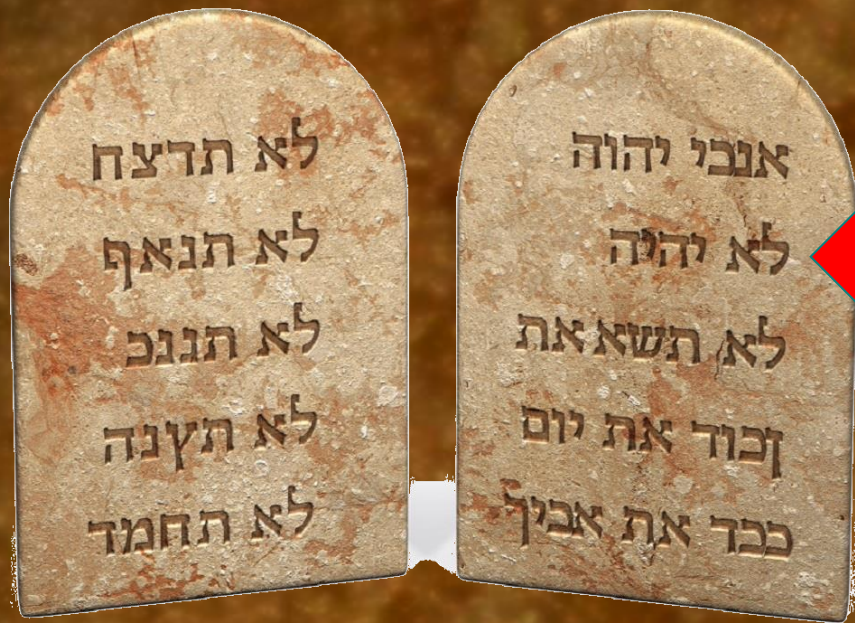 אנכי יהוה
לא יהיה
לא תשאאת
ןכוד את יום
ככד את אביך
לא תדצח
לא תנאף
לא תגנכ
לא תץנה
לא תחמד